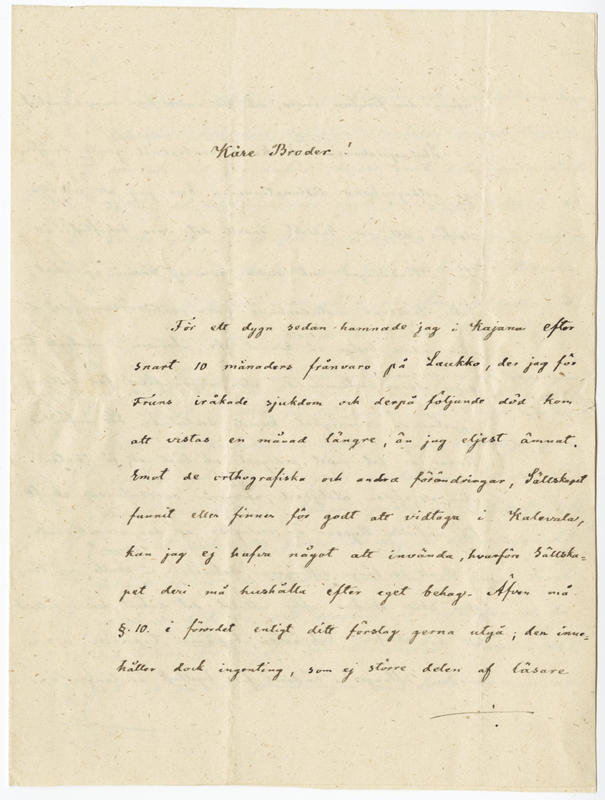 Käre Broder!
För ett dygn sedan hamnade jag i Kajana efter
snart 10 månaders frånvaro på Laukko, der jag för
Fruns iråkade sjukdom och derpå följande död kom
att vistas en månad längre, än jag eljest ämnat.
Emot de orthografiska och andra förändringar, Sällskapet
funnit eller finner för godt att vidtaga i Kalevala,
kan jag ej hafva något att invända, hvarföre Sällska-
pet deri må hushålla efter eget behag. Äfven må
§. 10. i förordet enligt ditt förslag gerna utgå; den inne-
håller dock ingenting, som ej större delen af läsare